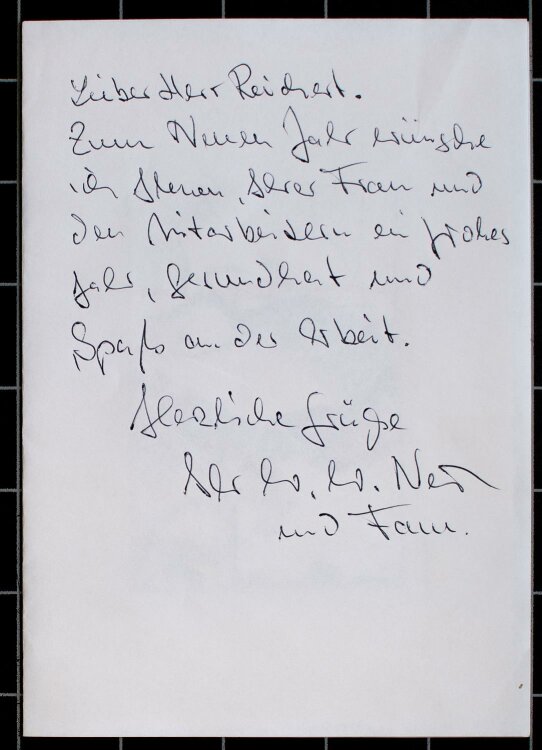 Lieber Herr Reichert.
Zum Neuen Jahr wünsche
ich Ihnen, Ihrer Frau und
den Mitarbeitern ein frohes
Jahr, Gesundheit und
Spaß an der Arbeit.
Herzliche Grüße
Ihr W. W.
und Fam.